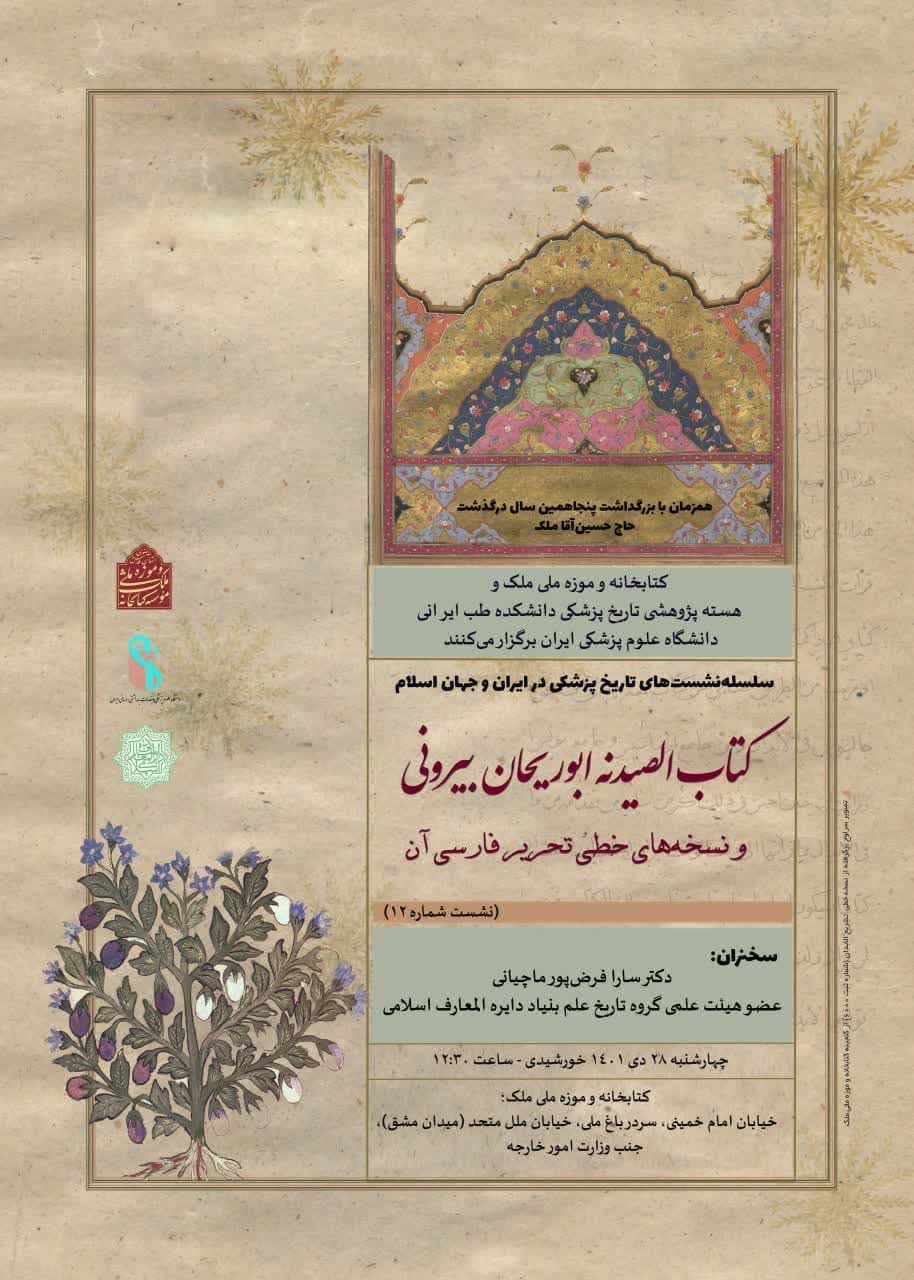 همزمان با بزرگداشت پنجاهمین سال درگذشت
حاج حسین‌آقا ملک
کتابخانه و موزه ملی ملک و
هسته پژوهشی تاریخ پزشکی دانشکده طب ایرانی
دانشگاه علوم پزشکی ایران برگزار می‌کنند
سلسله‌نشست‌های تاریخ پزشکی در ایران و جهان اسلام
کتاب الصیدنه ابوریحان بیرونی
و نسخه‌های خطی تحریر فارسی آن
(نشست شماره ۱۲)
سخنران:
دکتر سارا فرض‌پور ماچیانی
عضو هیئت علمی گروه تاریخ علم بنیاد دایره المعارف اسلامی
چهارشنبه ۲۸ دی ۱۴۰۱ خورشیدی - ساعت ۱۲:۳۰
کتابخانه و موزه ملی ملک؛
خیابان امام خمینی، سردر باغ ملی، خیابان ملل متحد (میدان مشق)،
جنب وزارت امور خارجه
تصویر سرلوح برگرفته از نسخه خطی تشریح الابدان (شماره ثبت ۶۰۰۰) از گنجینه کتابخانه و موزه ملی ملک
موسسه کتابخانه
و موزه ملی
ملک